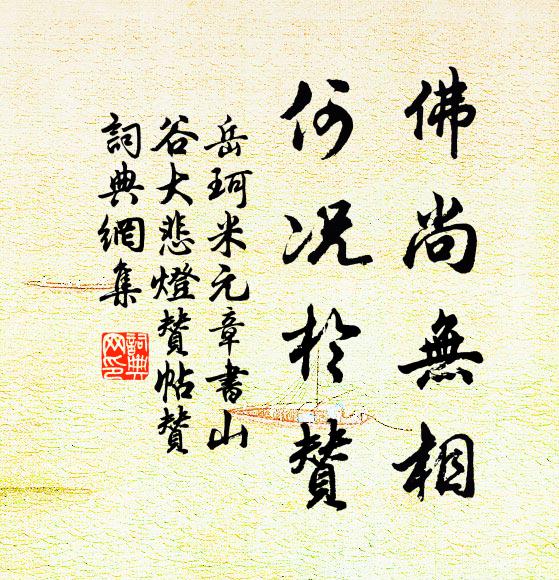 佛尚無相
何况於贊
岳珂米元章書山
谷大悲燈贊帖贊
詞典網集
詞典
网印